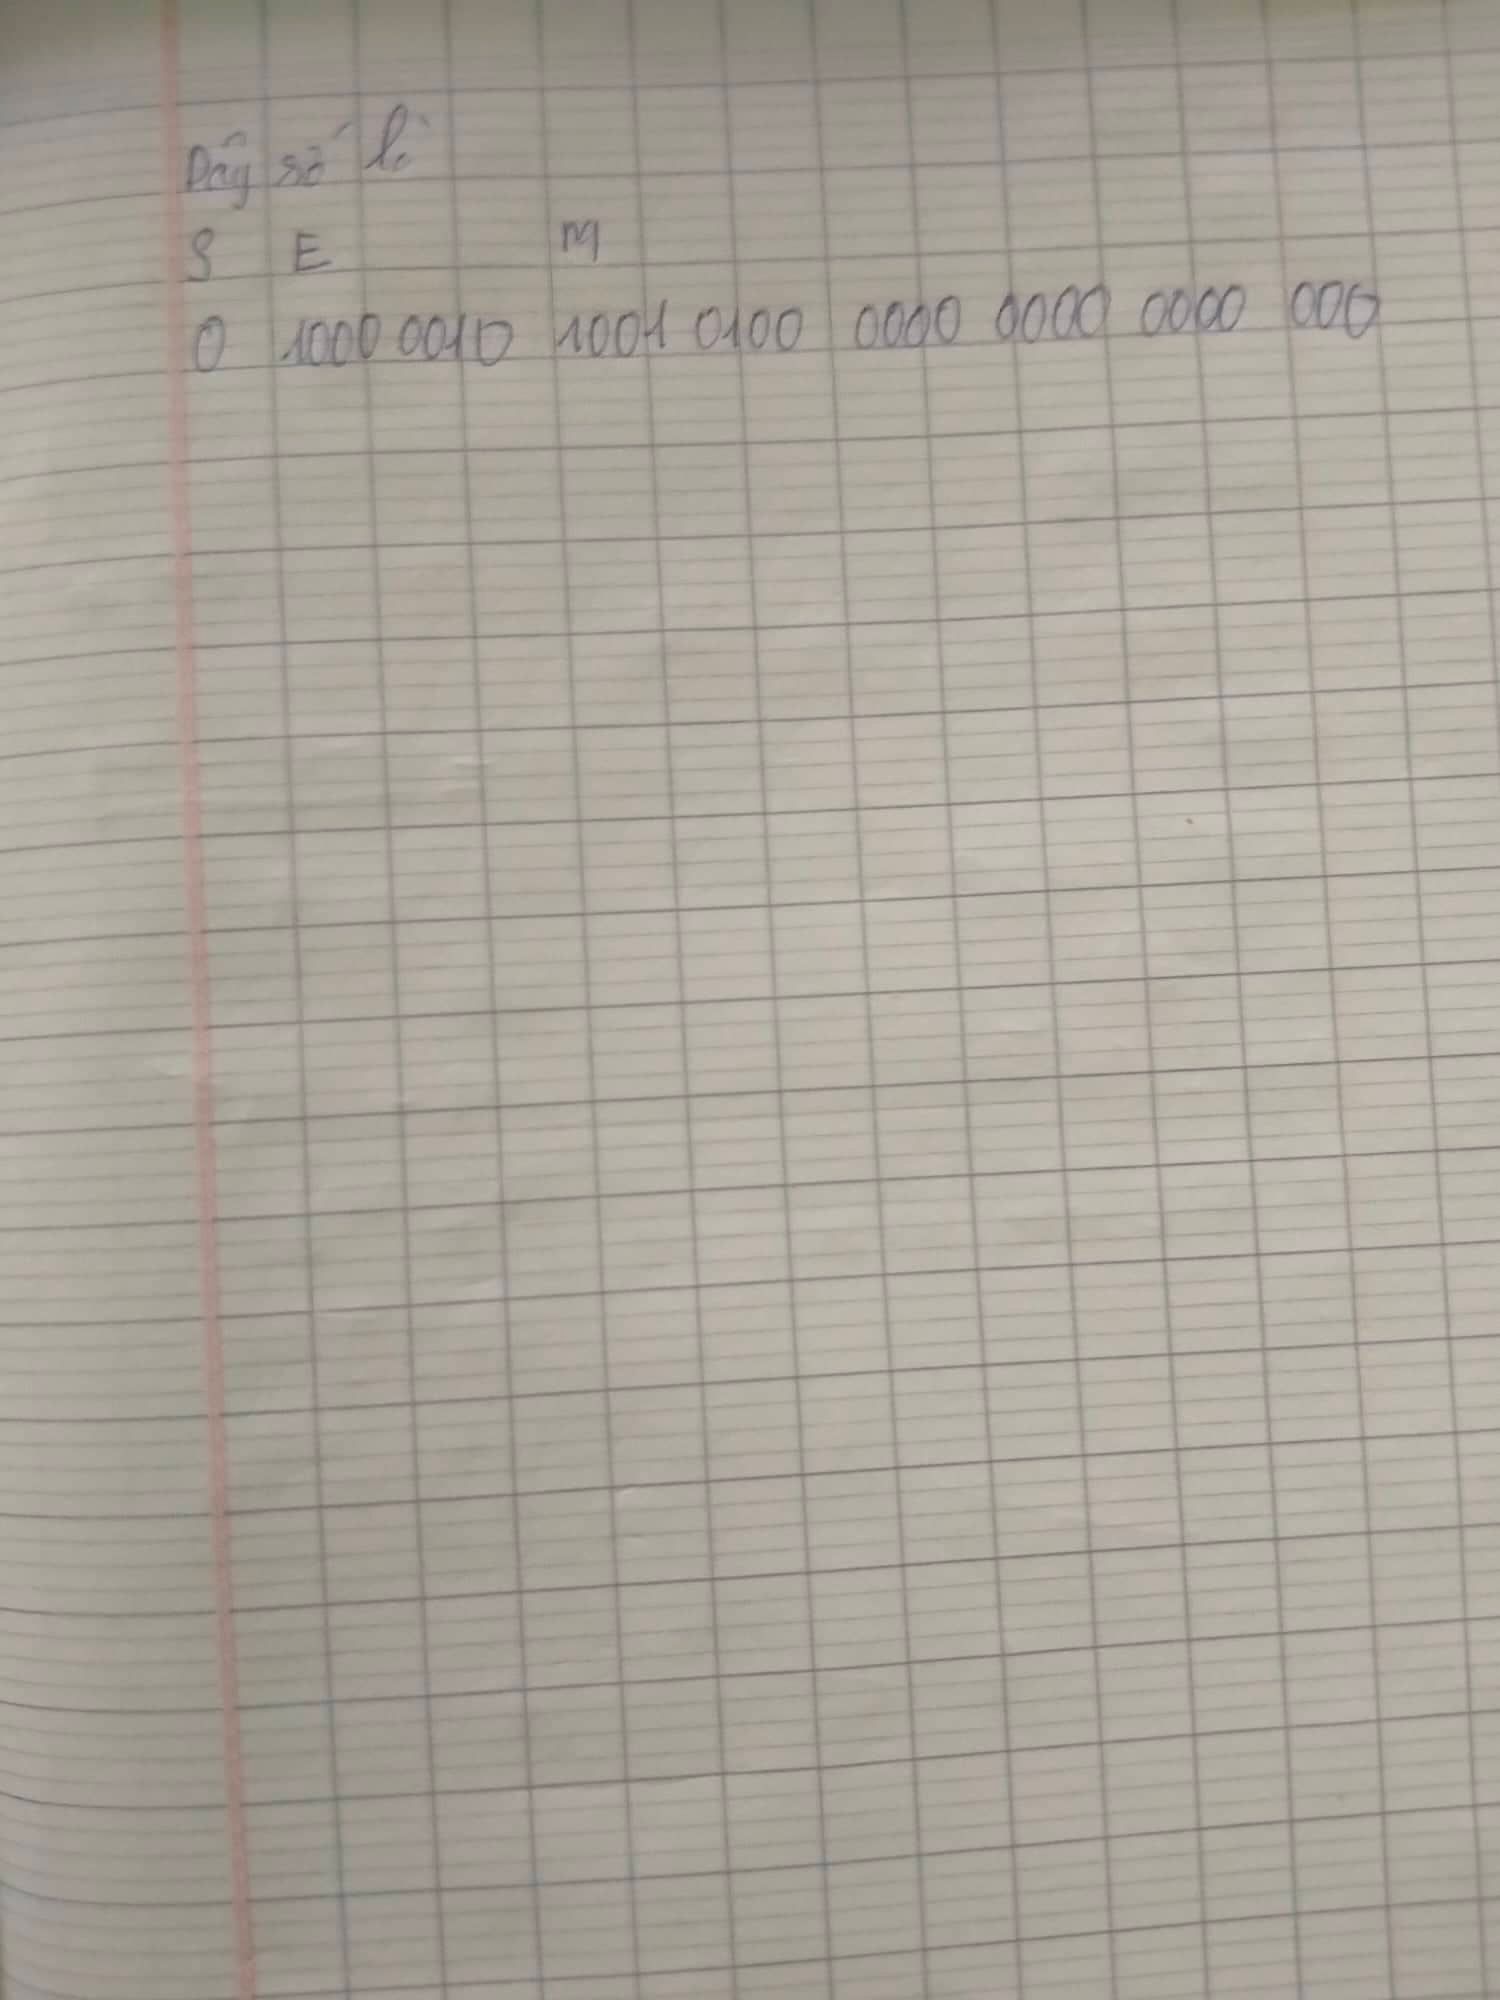 Dãy số 1:
S E M
0 1000 0010 1001 0100 0000 0000 0000 000